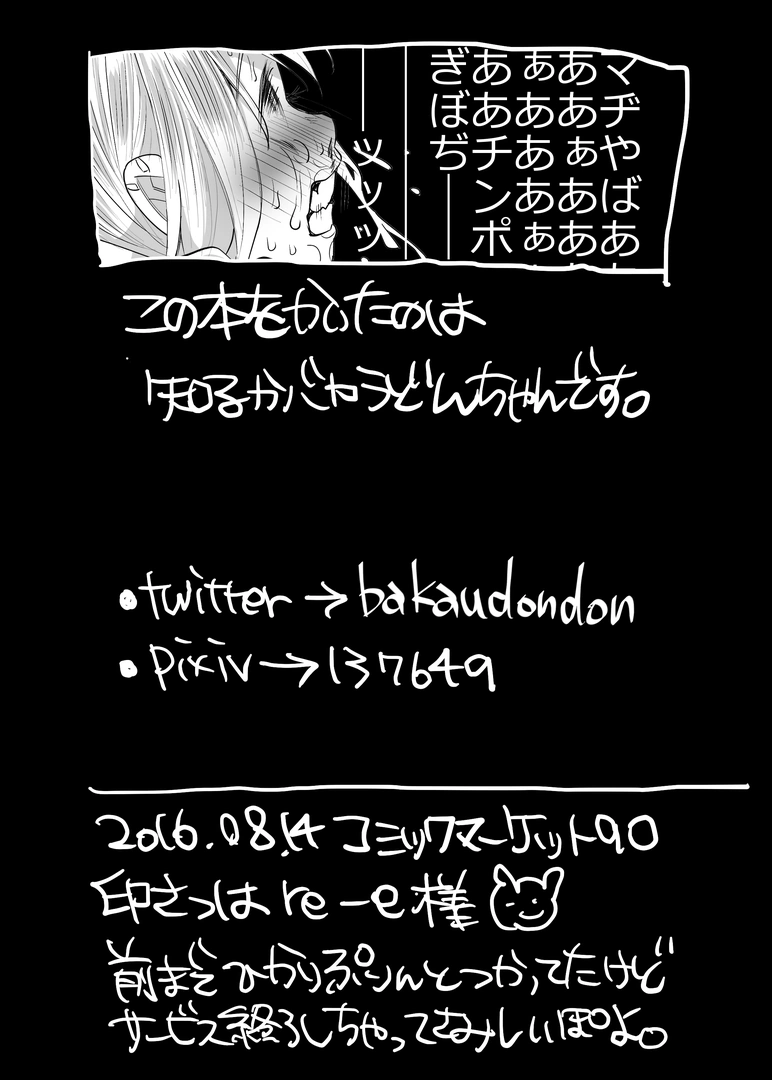 マヂやばあ
ああぁああ
あぁあぁあぁ
ああチンポ
ぎぼぢ――
――ッッッ
この本をかいたのは
知るかバカうどんちゃんです。
•twitter→bakaudondon
•pixiv→137649
2016.08.14 コミックマーケット90
印さつは re-e様
前までひかりぷりんとつかってたけど
サービス終ろしちゃってさみしいぽよ。